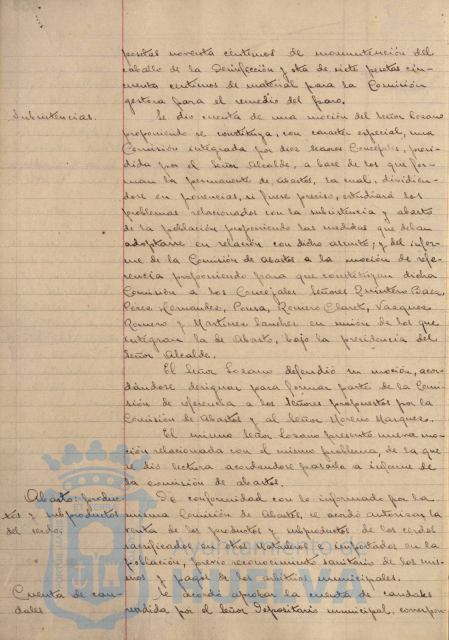 pesetas noventa céntimos de manutención del
caballo de la Desinfección y otra de siete pesetas cin-
cuenta céntimos de material para la Comisión
gestora para el remedio del paro.
Subsistencias.
Se dio cuenta de una moción del Señor Lozano
proponiendo se constituya, con carácter especial, una
Comisión integrada por diez Señores Concejales, presi-
dida por el Señor Alcalde, a base de los que for-
man la permanente de Abastos, la cual, dividién-
dose en ponencias, si fuese preciso, estudiará los
problemas relacionados con la subsistencia y abasto
de la población proponiendo las medidas que deban
adoptarse en relación con dicho asunto; y del infor-
me de la Comisión de Abastos a la moción de refe-
rencia proponiendo para que constituyan dicha
Comisión a los Concejales Señores Quintero Baez,
Pérez Hernández, Ponsa, Romero Claret, Vázquez
Romero y Martínez Sánchez en unión de los que
integran la de Abasto, bajo la presidencia del
Señor Alcalde.
El Señor Lozano defendió su moción, acor-
dándose designar para formar parte de la Comi-
sión de referencia a los Señores propuestos por la
Comisión de Abastos y al Señor Moreno Márquez.
El mismo Señor Lozano presentó nueva mo-
ción relacionada con el mismo problema, de la que
se dio lectura acordándose pasarla a informe de
la comisión de abastos.
Abasto: produc-
tos y subproductos
del cerdo.
De conformidad con lo informado por la
misma Comisión de Abastos, se acordó autorizar la
venta de los productos y subproductos de los cerdos
sacrificados en otros Mataderos e importados en la
población, previo reconocimiento sanitario de los mis-
mos y pago de los arbitrios municipales.
Cuenta de cau-
dales
Se acordó aprobar la cuenta de caudales
rendida por el Señor Depositario municipal, correspon-
Ayuntamiento de
HUELVA